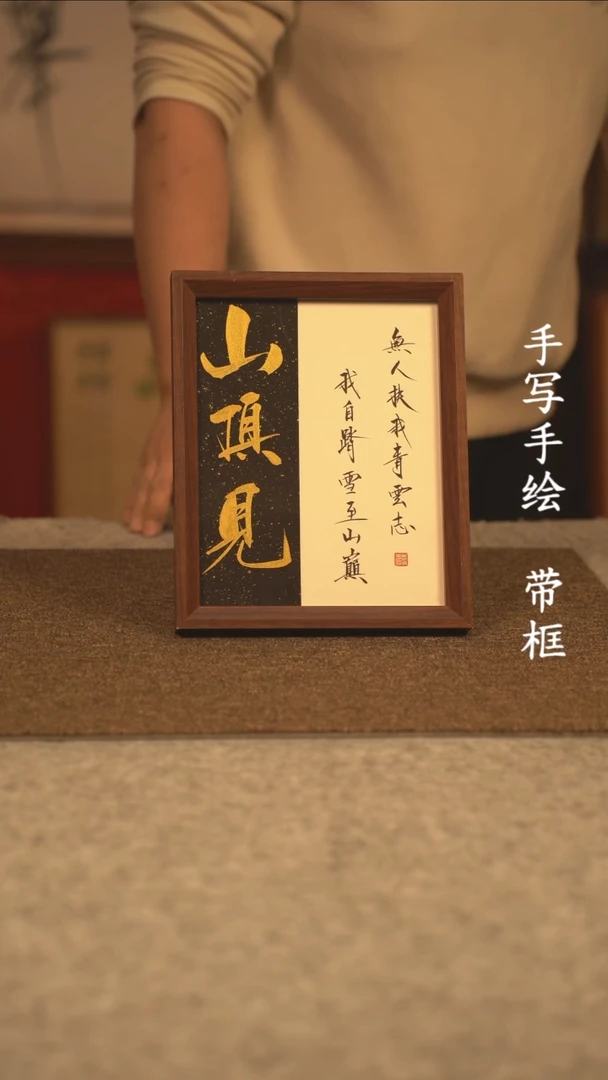 山頂見
無人扶我青雲志
我自踏雪至山巔
手写手绘 带框